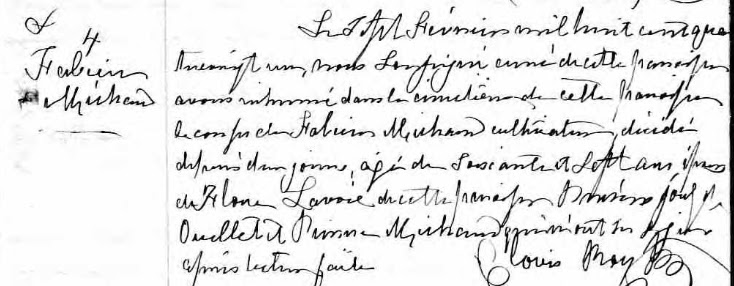 S
4
Fabien
Michaud
Le Sept Février mil huit cent quatre
vingt un, nous Soussigné curé de cette paroisse
avons inhumé dans le cimetière de cette paroisse
le corps de Fabien Michaud cultivateur, décédé
depuis deux jours, agé de Soixante et Sept ans époux
de Flore Lavoie de cette paroisse Présens
Ouellet et Michaud qui n'ont su signer
après lecture faite Clovis Roy Ptre